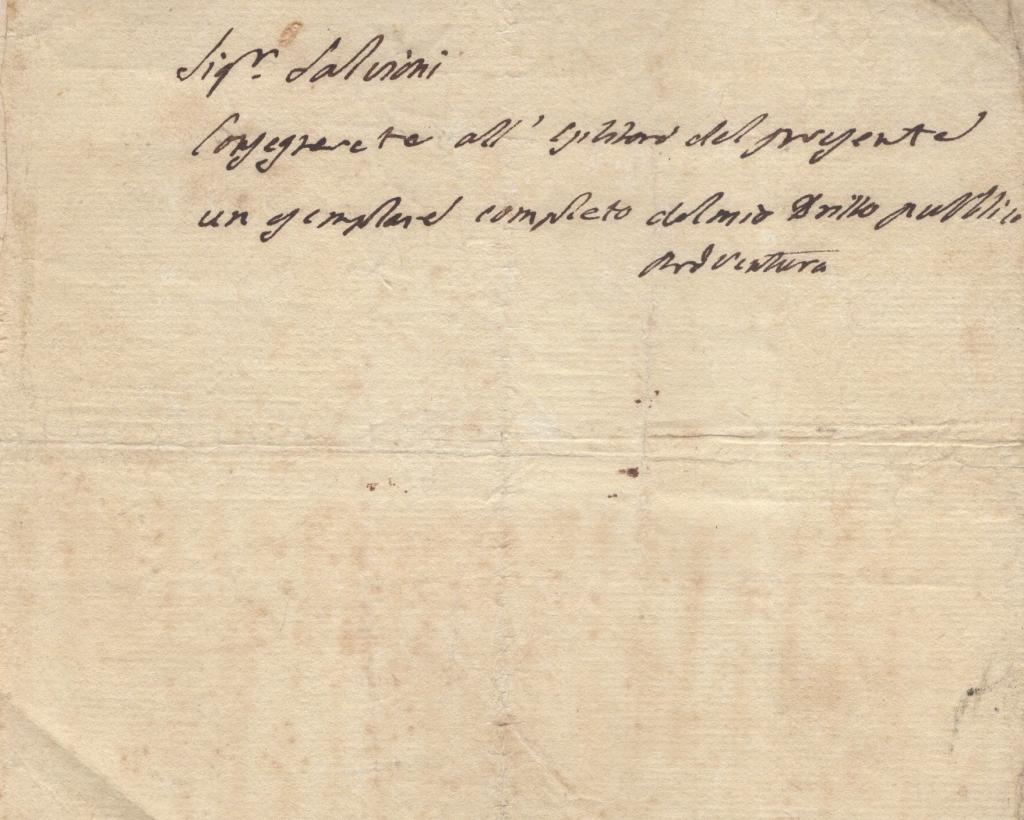 Sigr. Salvioni
Consegnerete all' esibitore del presente
un esemplare completo del mio Dritto pubblico
Ventura